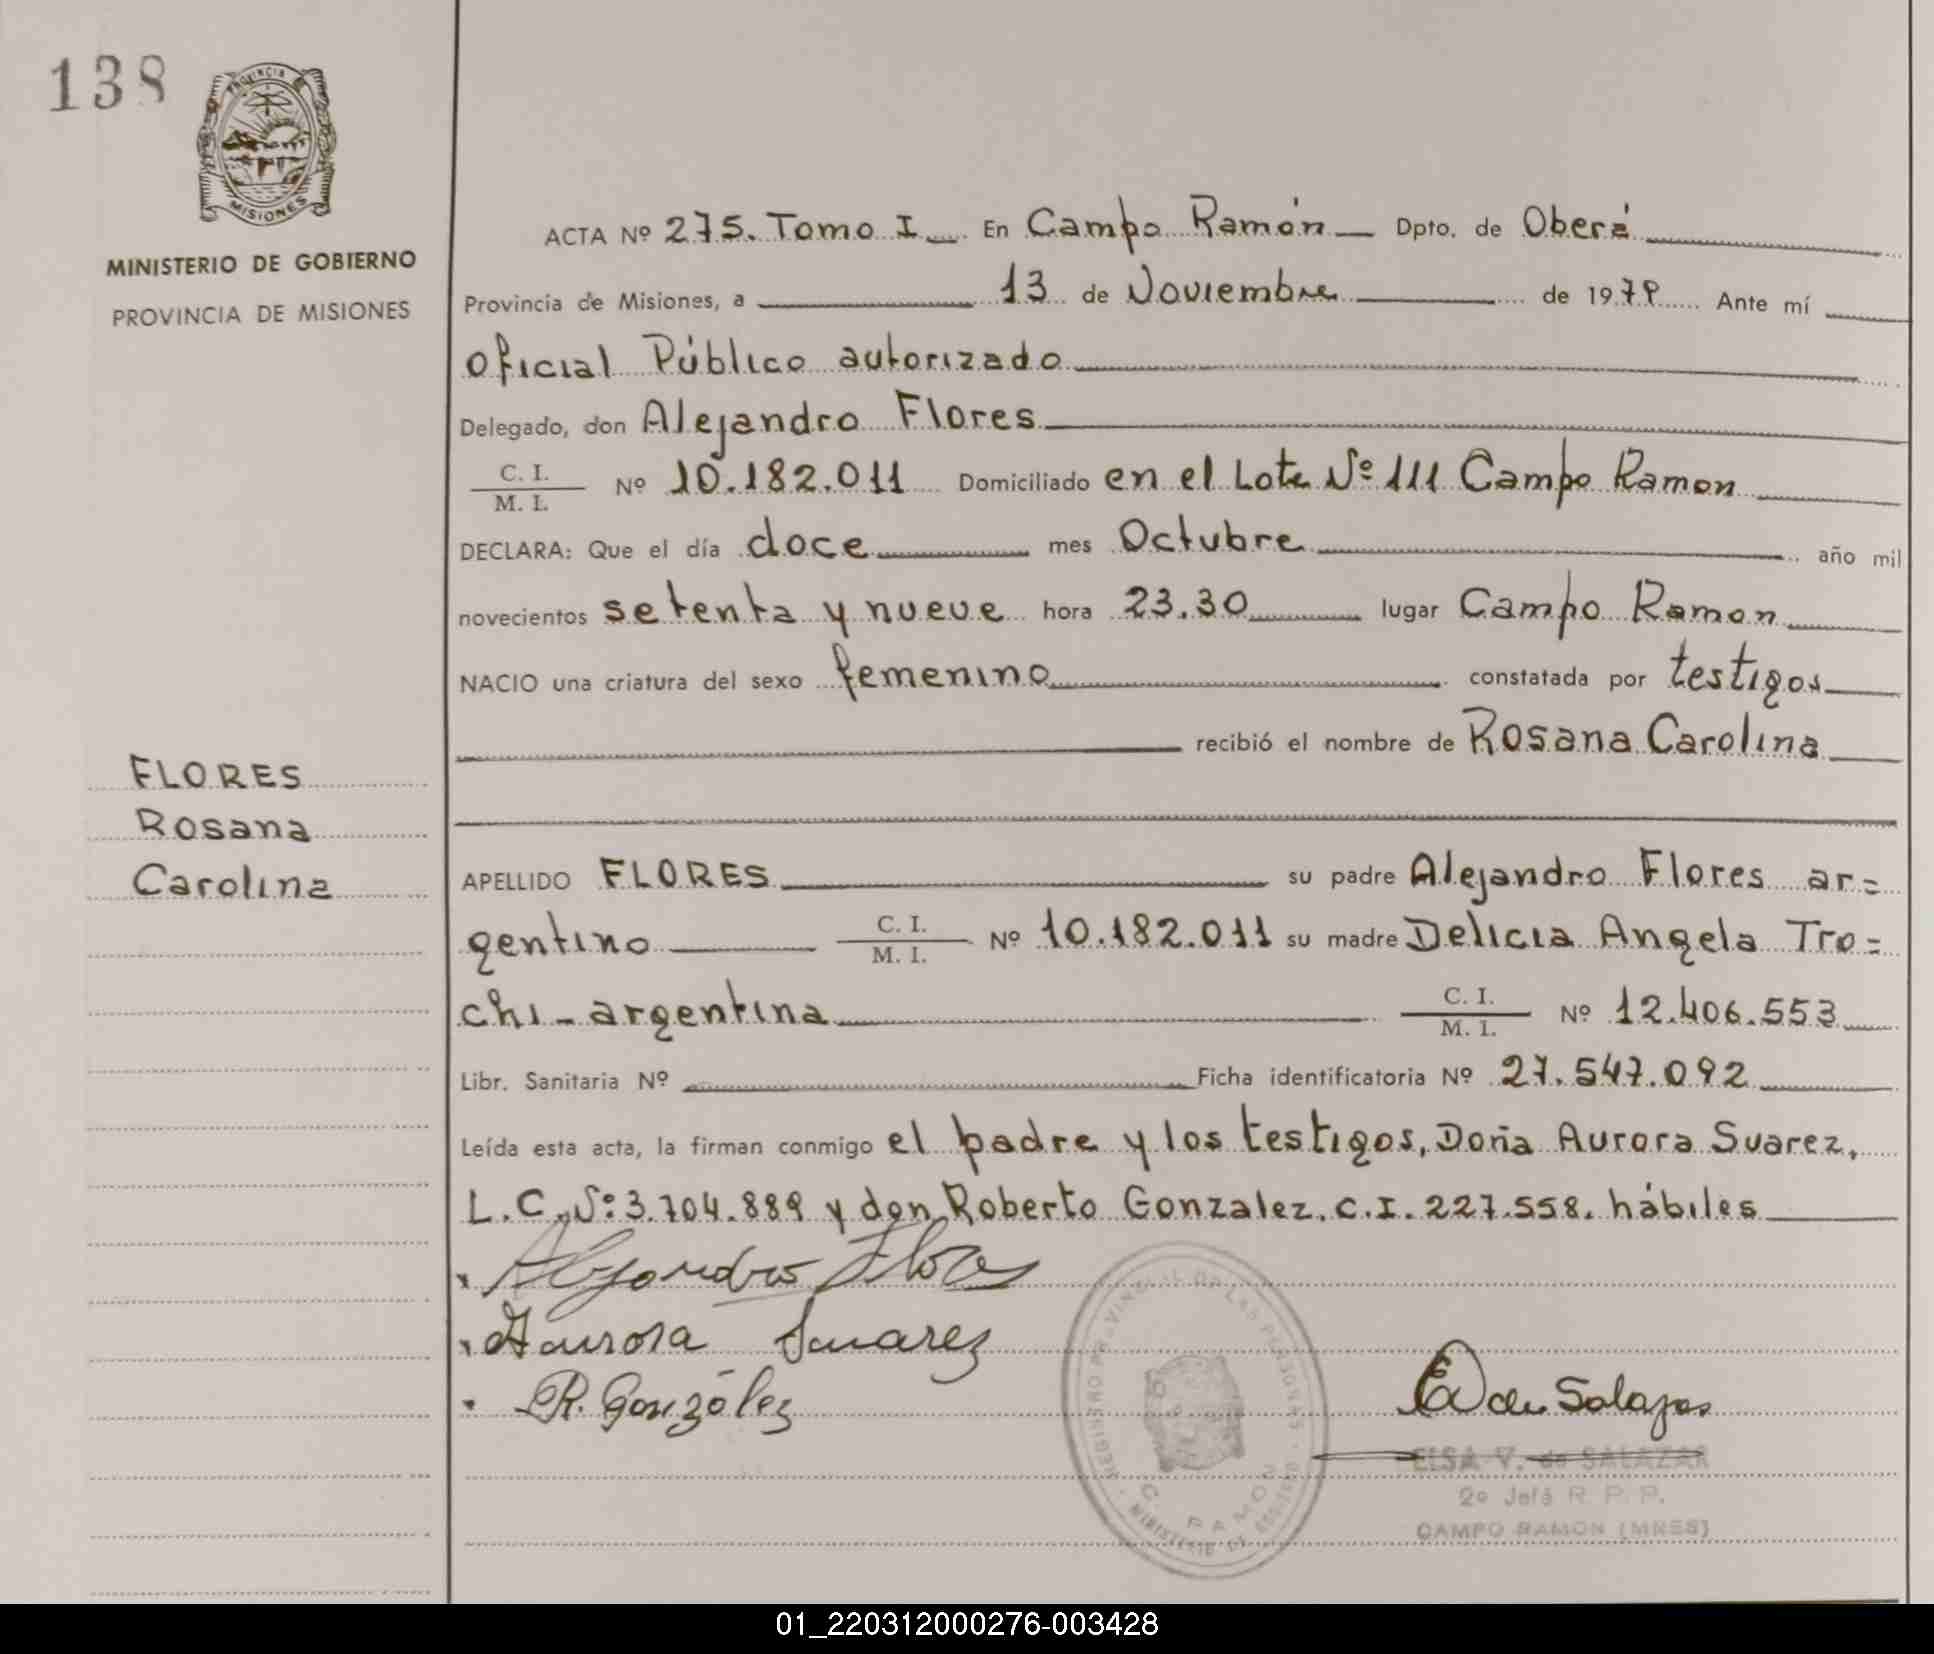 138
PROVINCIA DE
MISIONES
MINISTERIO DE GOBIERNO
PROVINCIA DE MISIONES
FLORES
Rosana
Carolina
ACTA Nº 275. Tomo I En Campo Ramón Dpto. de Oberá
Provincia de Misiones, a 13 de Noviembre de 1979 Ante mí
Oficial Público autorizado
Delegado, don Alejandro Flores
C. I.
M. I. Nº 10.182.011 Domiciliado en el Lote Nº 111 Campo Ramon
DECLARA: Que el día doce mes Octubre año mil
novecientos setenta y nueve hora 23.30 lugar Campo Ramon
NACIO una criatura del sexo femenino constatada por testigos
recibió el nombre de Rosana Carolina
APELLIDO FLORES su padre Alejandro Flores ar=
gentino C. I.
M. I. Nº 10.182.011 su madre Delicia Angela Tro=
chi - argentina C. I.
M. I. Nº 12.406.553
Libr. Sanitaria Nº Ficha identificatoria Nº 27.547.092
Leída esta acta, la firman conmigo el padre y los testigos, Doña Aurora Suarez.
L.C. Nº: 3.704.889 y don Roberto Gonzalez. C.I. 227.558. hábiles
Alejandro Flores
Aurora Suarez
R. González
REGISTRO PROVINCIAL DE LAS PERSONAS
MINISTERIO DE GOBIERNO
C. RAMON
E V de Salazar
ELSA V. de SALAZAR
2º Jefe R. P. P.
CAMPO RAMON (MNES)
01_220312000276-003428